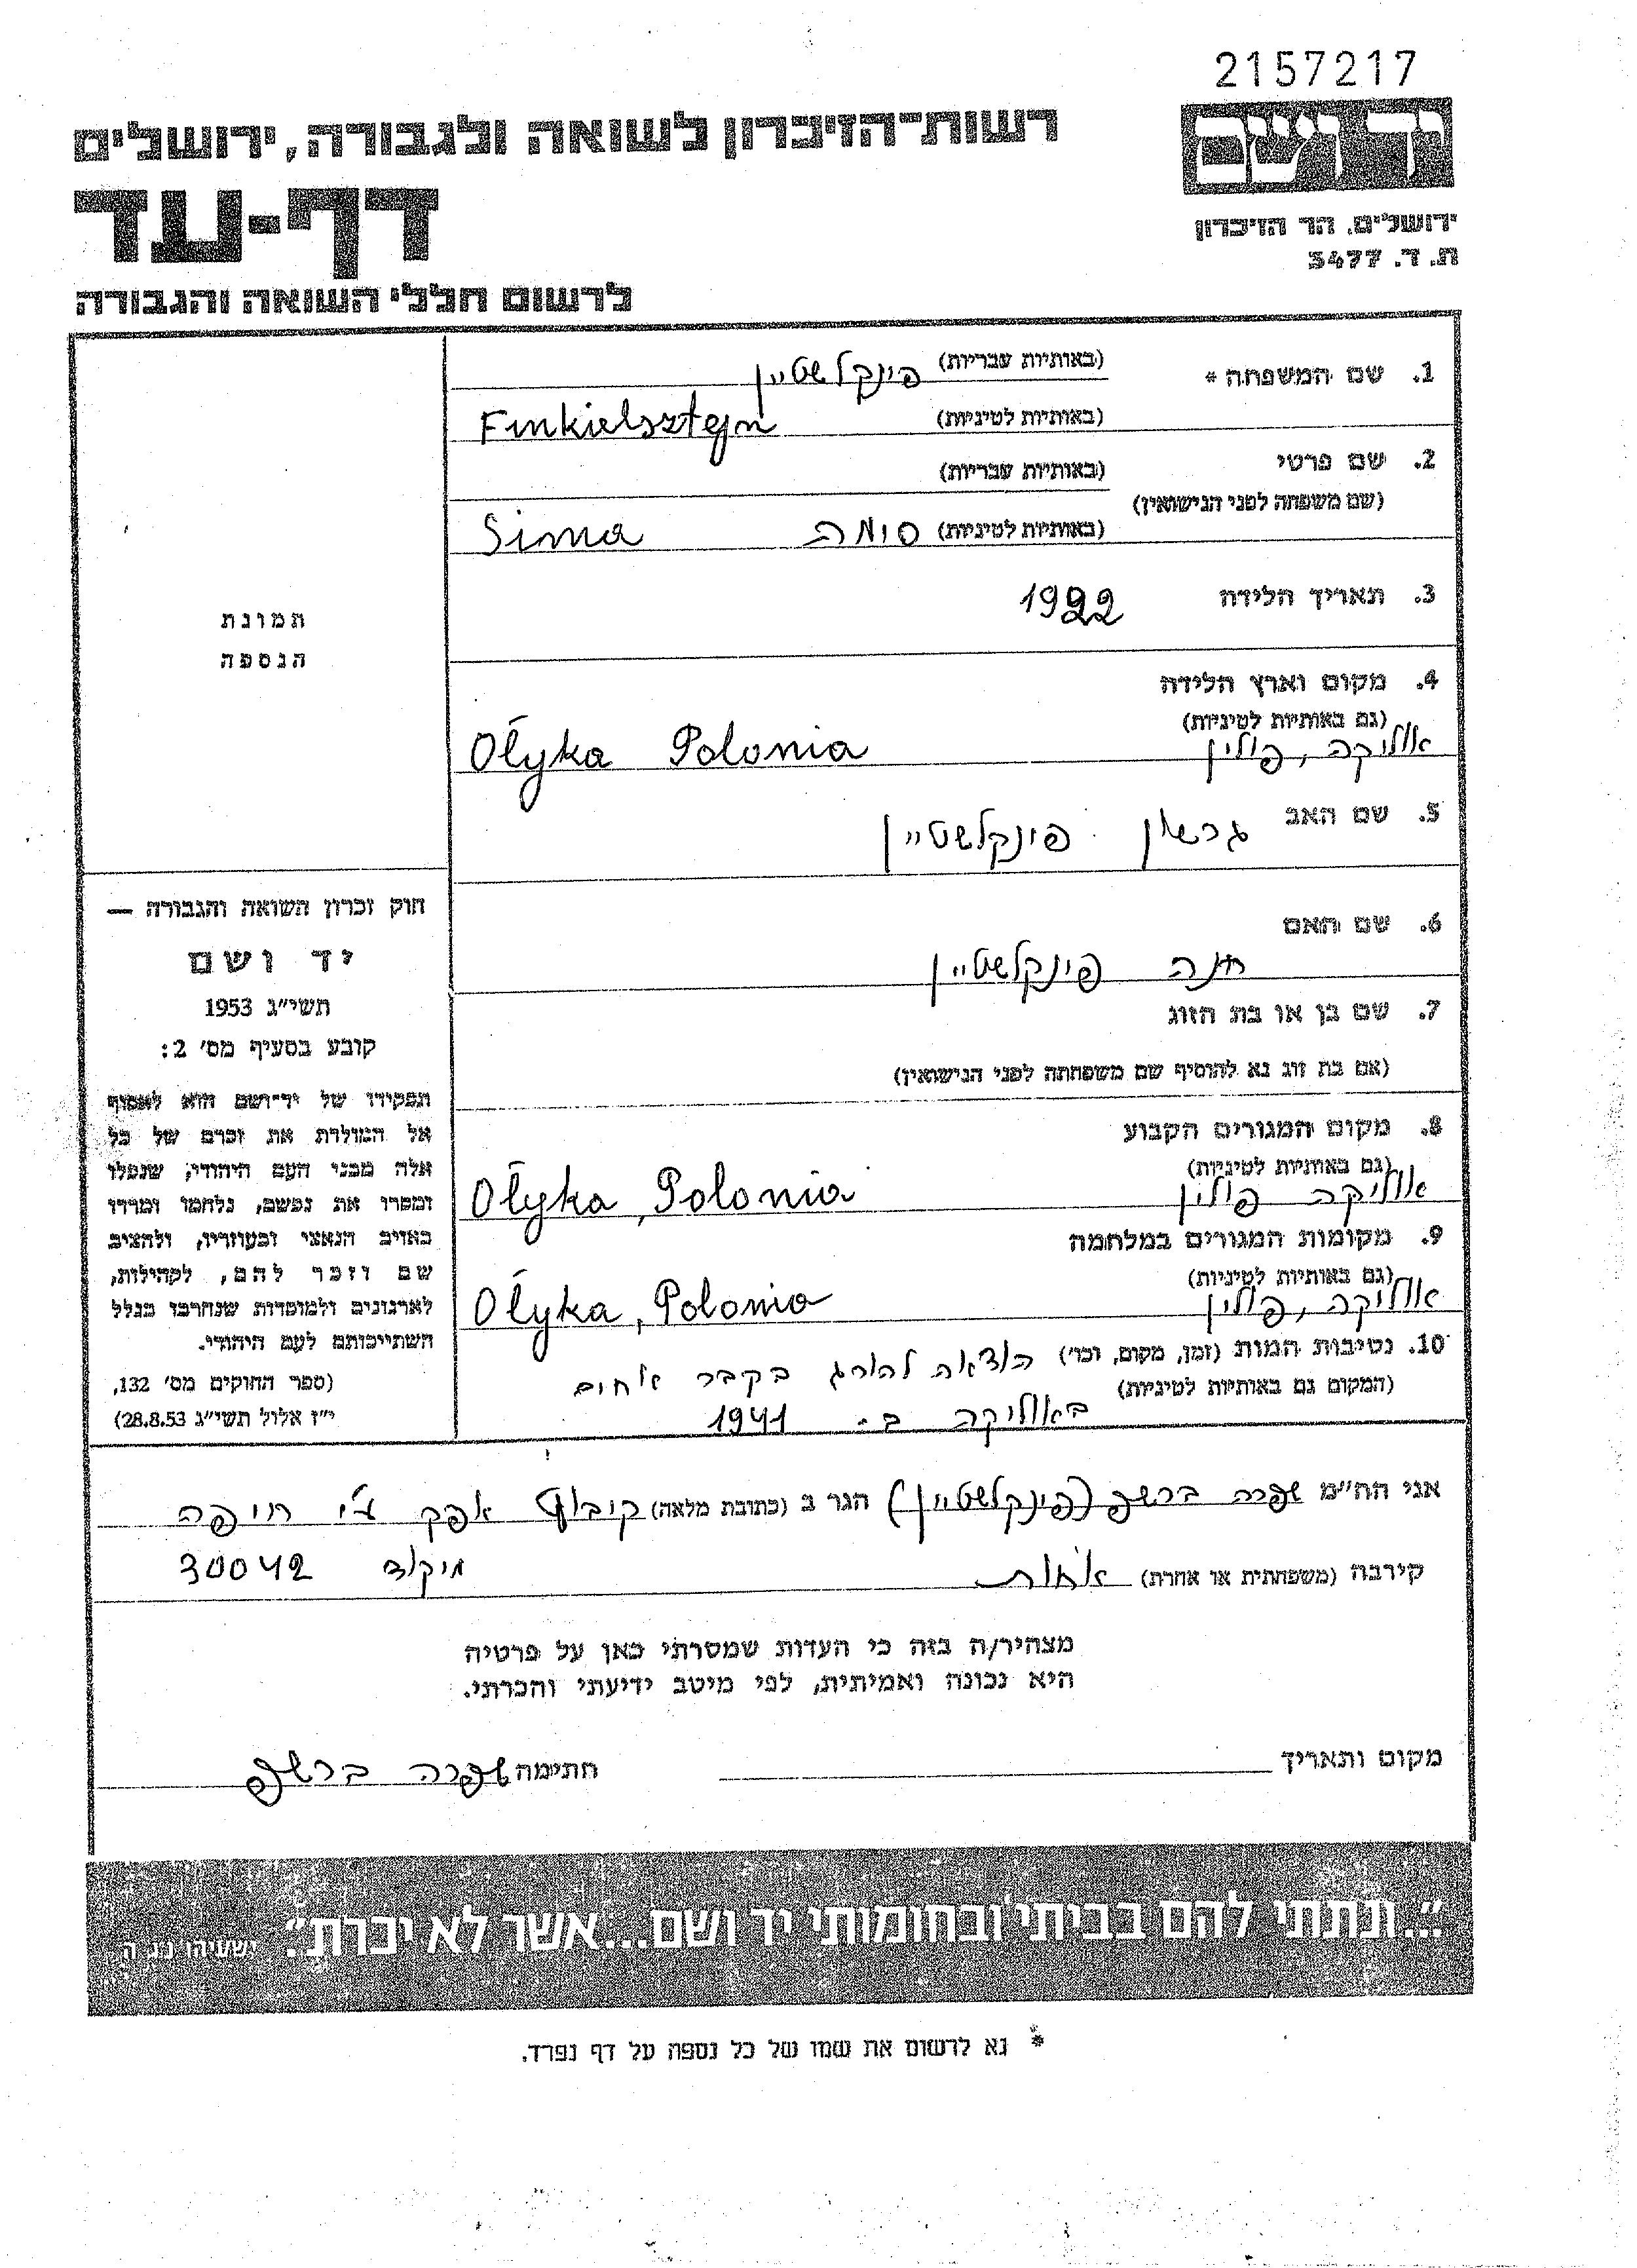 2157217
יד ושם
רשות-הזיכרון לשואה ולגבורה, ירושלים
דף-עד
ירושלים. הר הזיכרון
ת. ד. 3477
לרשום חללי השואה והגבורה
1. שם המשפחה * (באותיות עבריות) פינקלשטיין
(באותיות לטיניות) Finkielsztejn
2. שם פרטי (באותיות עבריות)
(שם משפחה לפני הנישואין)
(באותיות לטיניות) סימה Sima
3. תאריך הלידה 1922
תמונת
הנספה
4. מקום וארץ הלידה
(גם באותיות לטיניות)
אוליקה, פולין Ołyka Polonia
5. שם האב גרשון פינקלשטיין
6. שם האם
חנה פינקלשטיין
7. שם בן או בת הזוג
(אם בת זוג נא להוסיף שם משפחתה לפני הנישואין)
8. מקום המגורים הקבוע
(גם באותיות לטיניות)
אוליקה פולין Ołyka, Polonia
9. מקומות המגורים במלחמה
(גם באותיות לטיניות)
אוליקה, פולין Ołyka, Polonia
10. נסיבות המות (זמן, מקום, וכו') הוצאה להורג בקבר אחים
(המקום גם באותיות לטיניות)
באוליקה ב- 1941
חוק זכרון השואה והגבורה —
יד ושם
תשי"ג 1953
קובע בסעיף מס' 2:
תפקידו של יד-ושם הוא לאסוף
אל המולדת את זכרם של כל
אלה מבני העם היהודי, שנפלו
ומסרו את נפשם, נלחמו ומרדו
באויב הנאצי ובעוזריו, ולהציב
שם וזכר להם, לקהילות,
לארגונים ולמוסדות שנחרבו בגלל
השתייכותם לעם היהודי.
(ספר החוקים מס' 132,
י"ז אלול תשי"ג 28.8.53)
אני הח"מ שפרה ברשף (פינקלשטיין) הגר ב (כתובת מלאה) קיבוץ אפק ע"י חיפה
קירבה (משפחתית או אחרת) אחות מיקוד 30042
מצהיר/ה בזה כי העדות שמסרתי כאן על פרטיה
היא נכונה ואמיתית, לפי מיטב ידיעתי והכרתי.
מקום ותאריך חתימה שפרה ברשף
"...ונתתי להם בביתי ובחומותי יד ושם...אשר לא יכרת". ישעיהו נו, ה
* נא לרשום את שמו של כל נספה על דף נפרד.